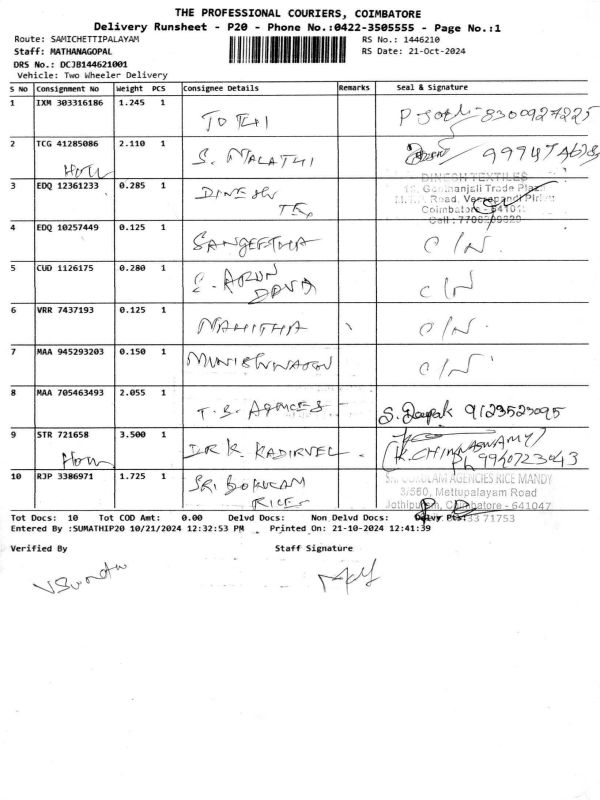 THE PROFESSIONAL COURIERS, COIMBATORE
Delivery Runsheet - P20 - Phone No.:0422-3505555 - Page No.:1
Route: SAMICHETTIPALAYAM RS No.: 1446210
Staff: MATHANAGOPAL RS Date: 21-Oct-2024
DRS No.: DCJB144621001
Vehicle: Two Wheeler Delivery
S No Consignment No Weight PCS Consignee Details Remarks Seal & Signature
1 IXM 303316186 1.245 1 JOTHI P. Jothi 8300927225
2 TCG 41285086 2.110 1 S. MALATHI
3 EDQ 12361233 0.285 1 DINESH TEX DINESH TEXTILES
Trade Plaza
Road, Veerapandi Pirivu
Coimbatore
4 EDQ 10257449 0.125 1 SANGEETHA C/N.
5 CUD 1126175 0.280 1 ARUN C/N
6 VRR 7437193 0.125 1 C/N.
7 MAA 945293203 0.150 1 C/N.
8 MAA 705463493 2.055 1 S. Deepak 9123523095
9 STR 721658 3.500 1 DR K. KADIRVEL. (K. CHINNASWAMY)
Ph 9940723043
10 RJP 3386971 1.725 1 SRI GOKULAM RICE SRI GOKULAM AGENCIES RICE MANDY
3/560, Mettupalayam Road
Jothipuram, Coimbatore - 641047
33 71753
Tot Docs: 10 Tot COD Amt: 0.00 Delvd Docs: Non Delvd Docs: Delvy Pts:
Entered By :SUMATHIP20 10/21/2024 12:32:53 PM Printed On: 21-10-2024 12:41:39
Verified By Staff Signature